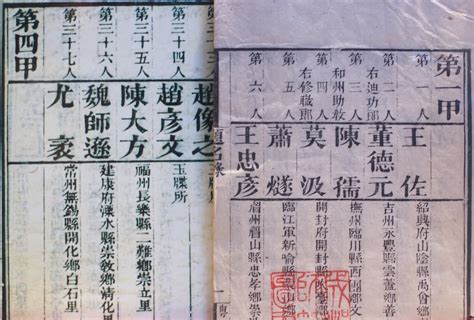 第一甲
第一人
王佐
紹興府山陰縣禹會鄉
第二人
右迪功郎
董德元
吉州永豐縣雲蓋鄉善
第三人
和州助教
陳孺
撫州臨川縣
第四人
右修職郎
莫汲
開封府開封縣
第五人
蕭燧
臨江軍新喻縣
第六人
王忠彥
眉州眉山縣忠孝鄉崇
題名錄
一
趙像之
第三十四人
趙彥文
玉牒所
第三十五人
陳大方
福州長樂縣二難鄉崇立里
第三十六人
魏師遜
建康府溧水縣崇教鄉清化里
第三十七人
尤袤
常州無錫縣開化鄉白石里
第四甲